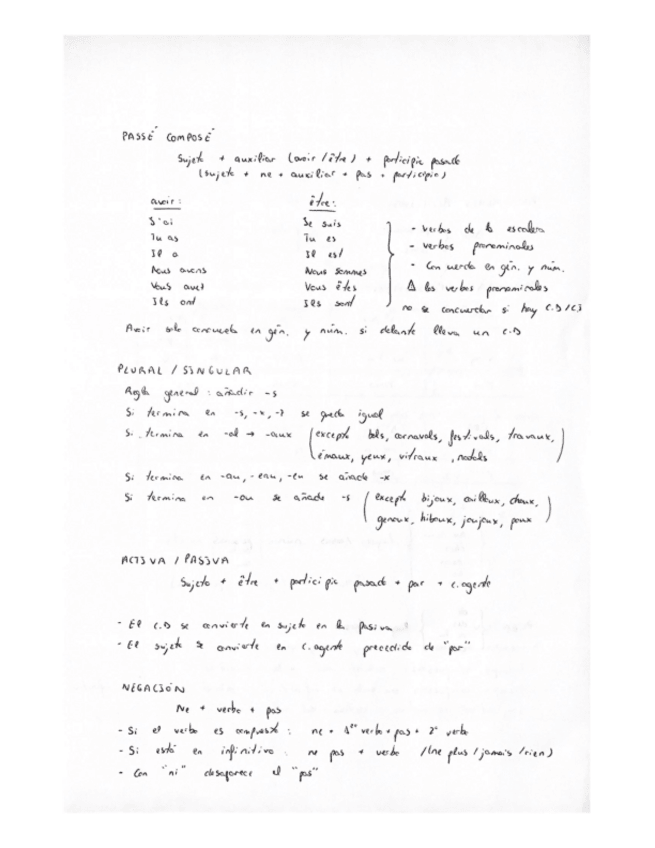 PASSÉ COMPOSÉ
Sujeto + auxiliar (avoir / être) + participio pasado
(sujeto + ne + auxiliar + pas + participio)
avoir: être:
J'ai Je suis
Tu as Tu es - verbos de la escalera
Il a Il est - verbos pronominales
Nous avons Nous sommes - Concuerda en gén. y núm.
Vous avez Vous êtes Δ los verbos pronominales
Ils ont Ils sont no se concuerdan si hay C.D / CI
Avoir solo concuerda en gén. y núm. si delante lleva un C.D
PLURAL / SINGULAR
Regla general: añadir -s
Si termina en -s, -x, -z se queda igual
Si termina en -al → -aux (excepto bals, carnavals, festivals, travaux,
émaux, yeux, vitraux, nadals)
Si termina en -au, -eau, -eu se añade -x
Si termina en -ou se añade -s (excepto bijoux, cailloux, choux,
genoux, hiboux, joujoux, poux)
ACTIVA / PASIVA
Sujeto + être + participio pasado + par + c. agente
- El C.D se convierte en sujeto en la pasiva
- El sujeto se convierte en c. agente precedido de "par"
NEGACIÓN
Ne + verbo + pas
- Si el verbo es compuesto: ne + 1er verbo + pas + 2º verbo
- Si está en infinitivo: ne pas + verbo / (ne plus / jamais / rien)
- Con "ni" desaparece el "pas"